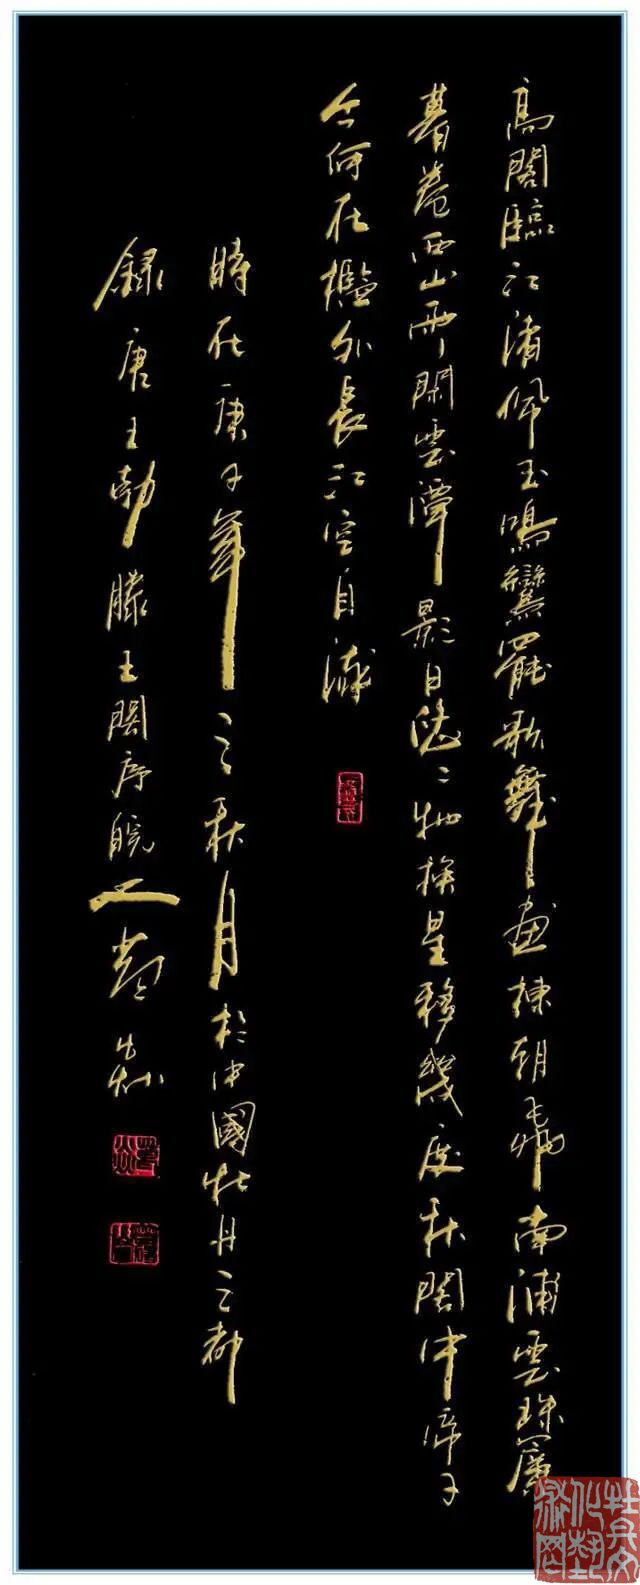 高閣臨江渚佩玉鳴鸞罷歌舞畫棟朝飛南浦雲珠簾
暮卷西山雨閑雲潭影日悠々物換星移幾度秋閣中帝子
今何在檻外長江空自流
時在庚子年之秋月於中國牡丹之都
錄唐王勃滕王閣序皖人